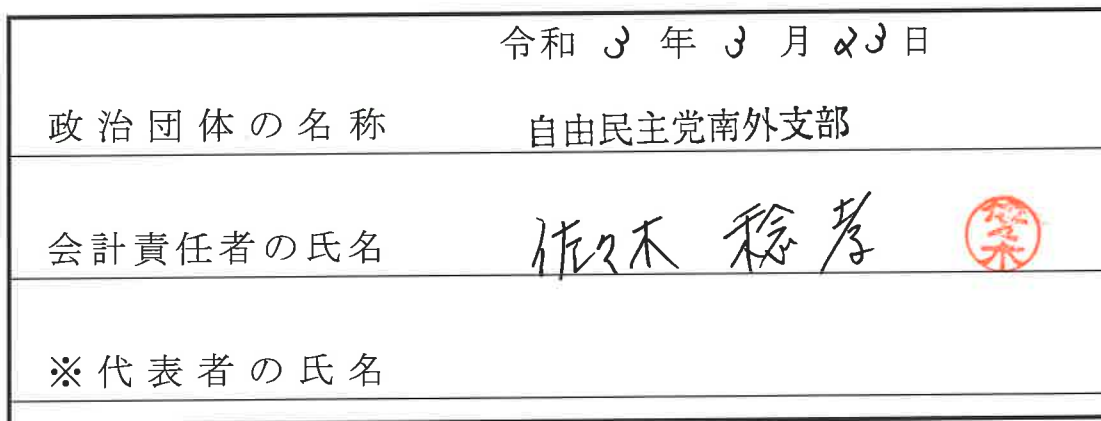 令和 3 年 3 月 23 日
政治団体の名称 自由民主党南外支部
会計責任者の氏名 佐々木 稔孝 佐々木
※代表者の氏名